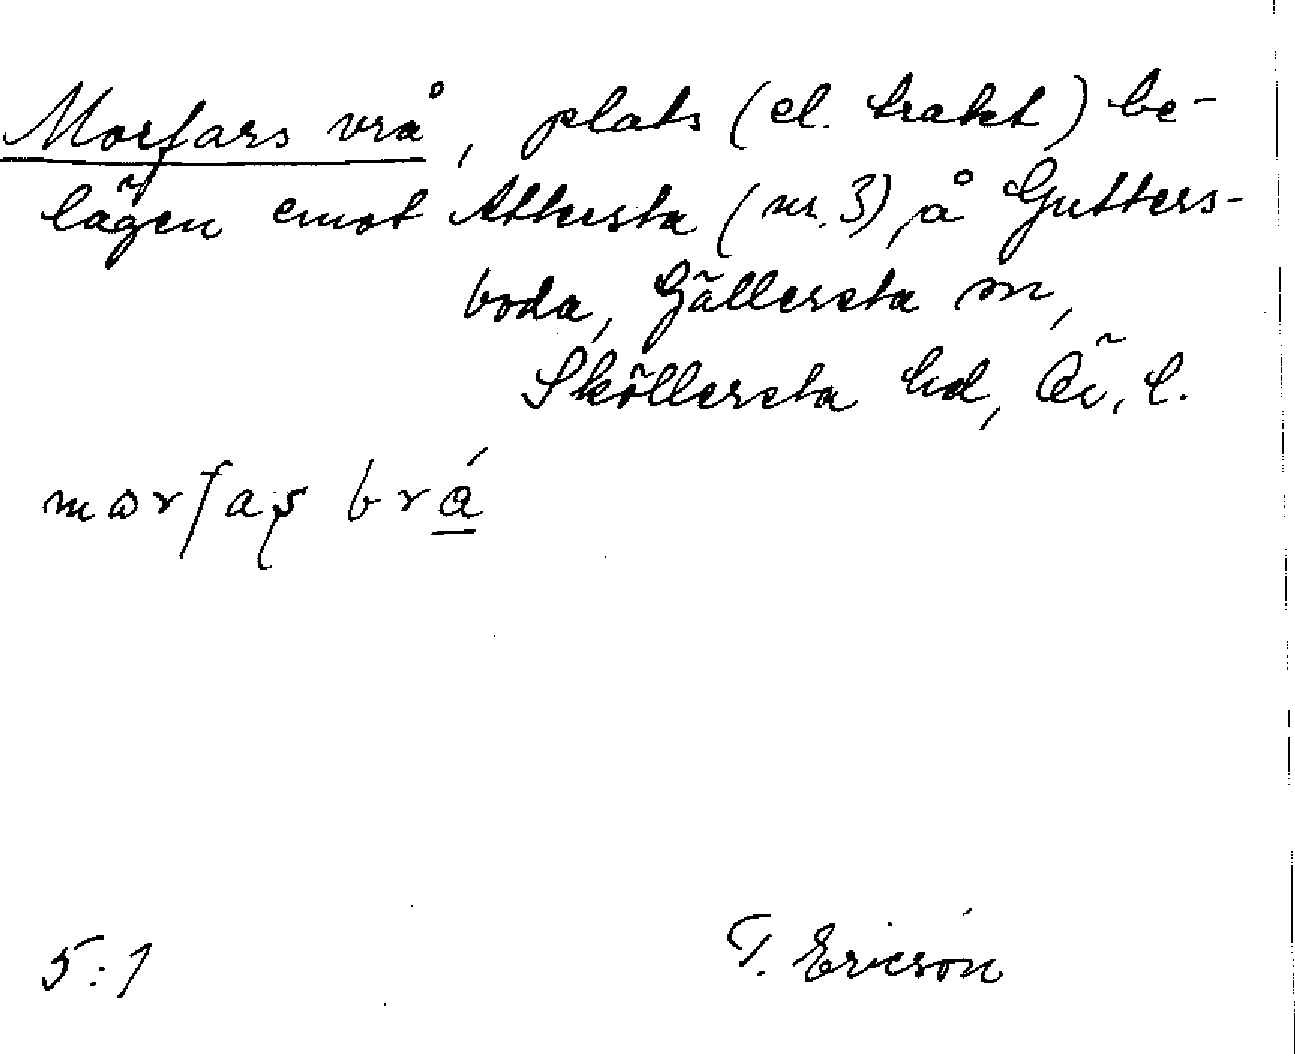 Morfars vrå, plats (el. trakt) be-
lägen emot Attersta (nr. 3) å Gutters-
boda, Gällersta sn,
Sköllersta hd, Ör. l.
morfaş brá
5:1
T. Ericson